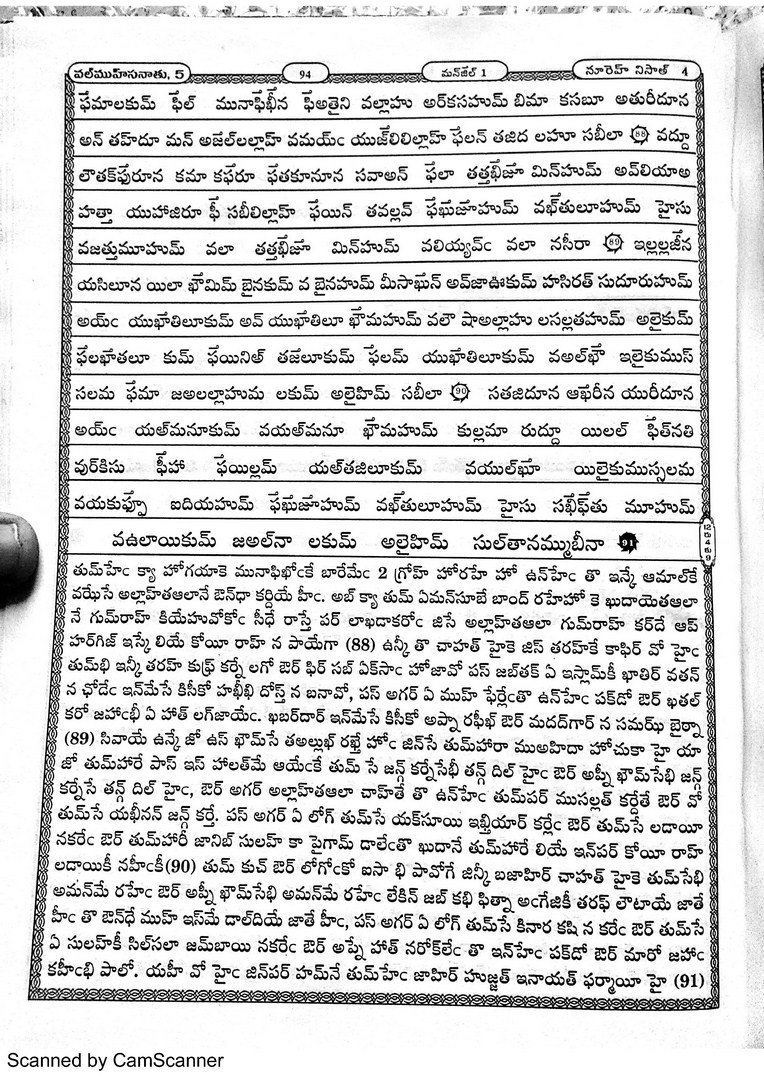 వల్‌ముహ్‌సనాతు, 5
94
మన్‌జిల్ 1
సూరెహ్ నిసాత్ 4
ఫేమాలకుమ్ ఫీల్ మునాఫిఖీన ఫిఅతైని వల్లాహు అర్‌కసహుమ్ బిమా కసబూ అతురీదూన
అన్ తహ్‌దూ మన్ అజల్‌లల్లాహ్ వమయ్c యుజ్‌లిలిల్లాహ్ ఫేలన్ తజిద లహూ సబీలా 88 వద్దూ
లౌతక్‌ఫురూన కమా కఫేరూ ఫేతకూనూన సవాఅన్ ఫేలా తత్తఖిజూ మిన్‌హుమ్ అవ్‌లియాఅ
హత్తా యుహాజిరూ ఫీ సబీలిల్లాహ్ ఫేయిన్ తవల్లవ్ ఫేఖుజూహుమ్ వఖ్‌తులూహుమ్ హైసు
వజత్తుమూహుమ్ వలా తత్తఖిజూ మిన్‌హుమ్ వలియ్యవ్c వలా నసీరా 89 ఇల్లల్లజీన
యసిలూన యిలా ఖౌమిమ్ బైనకుమ్ వ బైనహుమ్ మీసాఖున్ అవ్‌జాఊకుమ్ హసిరత్ సుదూరుహుమ్
అయ్c యుఖాతిలూకుమ్ అవ్ యుఖాతిలూ ఖౌమహుమ్ వలౌ షాఅల్లాహు లసల్లతహుమ్ అలైకుమ్
ఫేలఖాతలూ కుమ్ ఫేయినిఅ్ తజిలూకుమ్ ఫేలమ్ యుఖాతిలూకుమ్ వఅల్‌ఖౌ ఇలైకుముస్
సలమ ఫేమా జఅలల్లాహుమ లకుమ్ అలైహిమ్ సబీలా 90 సతజిదూన ఆఖేరీన యురీదూన
అయ్c యఅ్‌మనూకుమ్ వయఅ్‌మనూ ఖౌమహుమ్ కుల్లమా రుద్దూ యిలల్ ఫిత్‌నతి
వుర్‌కిసు ఫీహా ఫేయిల్లమ్ యఅ్‌తజిలూకుమ్ వయుల్‌ఖూ యిలైకుముస్సలమ
వయకుఫ్ఫూ ఐదియహుమ్ ఫేఖుజూహుమ్ వఖ్‌తులూహుమ్ హైసు సఖిఫ్‌తు మూహుమ్
వఉలాయికుమ్ జఅల్‌నా లకుమ్ అలైహిమ్ సుల్‌తానమ్ముబీనా 91
తుమ్‌హేc క్యా హోగయాకె మునాఫిఖోcకే బారేమేc 2 గ్రోహ్ హోరహే హో ఉన్‌హేc తో ఇన్కే ఆమాల్‌కే
వఝేసే అల్లాహ్‌తఆలానే ఔన్‌ధా కర్దియే హీc. అబ్ క్యా తుమ్ ఏమన్‌సూబే బాంద్ రహేహో కె ఖుదాయెతఆలా
నే గుమ్‌రాహ్ కియేహువోకోc సీధే రాస్తే పర్ లాఖడాకరోc జిసే అల్లాహ్‌తఆలా గుమ్‌రాహ్ కర్‌దే ఆప్
హర్‌గిజ్ ఇస్కే లియే కోయీ రాహ్ న పాయేగా (88) ఉన్కీ తొ చాహత్ హైకె జిస్ తరహ్‌కే కాఫిర్ వో హైc
తుమ్‌భి ఇన్కీ తరహ్ కుఫ్ర్ కర్నే లగో ఔర్ ఫిర్ సబ్ ఏక్‌సాc హోజావో పస్ జబ్‌తక్ ఏ ఇస్లామ్‌కీ ఖాతిర్ వతన్
న ఛోడేc ఇన్‌మేసే కిసీకో హఖీఖి దోస్త్ న బనావో, పస్ అగర్ ఏ ముహ్ ఫేర్లేcతొ ఉన్‌హేc పక్‌డో ఔర్ ఖతల్
కరో జహాcభీ ఏ హాత్ లగ్‌జాయేc. ఖబర్‌దార్ ఇన్‌మేసే కిసీకో అప్నా రఫీఖ్ ఔర్ మదద్‌గార్ న సమఝ్ బైఠ్నా
(89) సివాయే ఉన్కే జో ఉస్ ఖౌమ్‌సే తఅల్లుఖ్ రఖ్తే హోc జిన్‌సే తుమ్‌హారా ముఅహిదా హోచుకా హై యా
జో తుమ్‌హారే పాస్ ఇస్ హాలత్‌మే ఆయేcకే తుమ్ సే జన్గ్ కర్నేసేభీ తన్గ్ దిల్ హైc ఔర్ అప్నీ ఖౌమ్‌సేభి జన్గ్
కర్నేసే తన్గ్ దిల్ హైc, ఔర్ అగర్ అల్లాహ్‌తఆలా చాహ్‌తే తొ ఉన్‌హేc తుమ్‌పర్ ముసల్లత్ కర్దేతే ఔర్ వో
తుమ్‌సే యఖీనన్ జన్గ్ కర్తే. పస్ అగర్ ఏ లోగ్ తుమ్‌సే యక్‌సూయి ఇఖ్తియార్ కర్లేc ఔర్ తుమ్‌సే లడాయీ
నకరేc ఔర్ తుమ్‌హారీ జానిబ్ సులహ్ కా పైగామ్ దాలేcతొ ఖుదానే తుమ్‌హారే లియే ఇన్‌పర్ కోయీ రాహ్
లడాయికీ నహీcకీ(90) తుమ్ కుచ్ ఔర్ లోగోcకో ఐసా భి పావోగే జిన్కీ బజాహిర్ చాహత్ హైకె తుమ్‌సేభి
అమన్‌మే రహేc ఔర్ అప్నీ ఖౌమ్‌సేభి అమన్‌మే రహేc లేకిన్ జబ్ కభి ఫిత్నా అంగేజికీ తరఫ్ లౌటాయే జాతే
హీc తొ ఔన్‌ధే ముహ్ ఇస్‌మే దాల్‌దియే జాతే హీc, పస్ అగర్ ఏ లోగ్ తుమ్‌సే కినార కషి న కరేc ఔర్ తుమ్‌సే
ఏ సులహ్‌కీ సిల్‌సలా జమ్‌బాయి నకరేc ఔర్ అప్నే హాత్ నరోక్‌లేc తొ ఇన్‌హేc పక్‌డో ఔర్ మారో జహాc
కహీcభి పాలో. యహీ వో హైc జిన్‌పర్ హమ్‌నే తుమ్‌హేc జాహిర్ హుజ్జత్ ఇనాయత్ ఫర్మాయీ హై (91)
Scanned by CamScanner